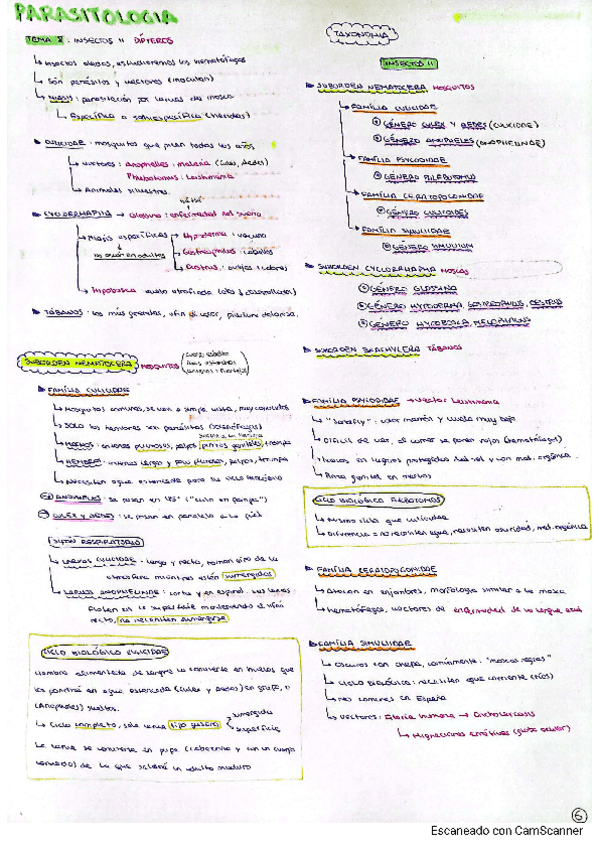 PARASITOLOGIA
TEMA : INSECTOS II DÍPTEROS
↳ Insectos alados, estudiaremos los hematófagos
↳ Son parásitos y vectores (inoculan)
↳ : parasitación por larvas de mosca
↳ Específica o semiespecífica (heridas)
CULICIDAE : mosquitos que pican todos los años
↳ vectores : Anopheles : malaria (Culex, Aedes)
Phlebotomus : Leishmania
↳ Animales silvestres
CYCLORRHAPHA → Glossina : enfermedad del sueño
↳ Miasis específicas → Hypoderma : vacuno
→ Gastrophilus : caballos
→ Oestrus : ovejas
↳ Hipobosca
TÁBANOS : los más grandes, picadura dolorosa
SUBORDEN NEMATOCERA MOSQUITOS
FAMILIA CULICIDAE
↳ Mosquitos comunes, se ven a simple vista, muy conocidos
↳ SOLO las hembras son parásitos
↳ MACHOS : antenas plumosas, palpos, trompa
↳ HEMBRAS : antenas largo y poco plumosas, palpos, trompa
↳ Necesitan agua estancada para su ciclo biológico
ANOPHELES : se posan en 45º "culo en pompa"
CULEX Y AEDES : se posan en paralelo a la piel
SIFÓN RESPIRATORIO
↳ LARVAS CULICIDAE : largo y recto, toman aire de la
atmósfera mientras están sumergidas
↳ LARVAS ANOPHELINAE : corto y en espiral. Las larvas
flotan en la superficie manteniendo el sifón
recto, no necesitan sumergirse
CICLO BIOLÓGICO CULICIDAE
Hembra alimentada de sangre la convierte en huevos que
los pondrá en agua estancada (Culex y Aedes) en grupo, o
(Anopheles) sueltos.
↳ Ciclo completo, solo larva tipo gusano
sumergida
superficie
La larva se convierte en pupa (cabezona y con un cuerpo
curvado) de la que saldrá un adulto maduro
TAXONOMIA
INSECTOS II
SUBORDEN NEMATOCERA MOSQUITOS
FAMILIA CULICIDAE
GÉNERO CULEX Y AEDES (CULICINAE)
GÉNERO ANOPHELES (ANOPHELINAE)
FAMILIA PSYCODIDAE
GÉNERO PHLEBOTOMUS
FAMILIA CERATOPOGONIDAE
GÉNERO CULICOIDES
FAMILIA SIMULIIDAE
GÉNERO SIMULIUM
SUBORDEN CYCLORRHAPHA MOSCAS
GÉNERO GLOSSINA
GÉNERO HYPODERMA, GASTROPHILUS, OESTRUS
GÉNERO HYPOBOSCA, MELOPHAGUS
SUBORDEN BRACHYCERA TÁBANOS
FAMILIA PSYCODIDAE → Vector Leishmania
↳ "Sandfly" : color marrón y vuela muy bajo
↳ Difícil de ver, al comer se ponen rojos (hematófagos)
↳ Huevos en lugares protegidos del sol y con mat. orgánica
CICLO BIOLÓGICO FLEBOTOMOS
↳ Mismo ciclo que culicidae
↳ Diferencia = no necesitan agua, necesitan oscuridad, mat. orgánica
FAMILIA CERATOPOGONIDAE
↳ Atacan en enjambres, morfología similar a la mosca
↳ Hematófagos, vectores de enfermedad de la lengua azul
FAMILIA SIMULIIDAE
↳ Oscuros con chepa, comúnmente : "moscas negras"
↳ CICLO BIOLÓGICO : necesitan agua corriente (ríos)
↳ Más comunes en España
↳ Vectores : Filaria humana → Oncocercosis
↳ Migraciones erráticas (globo ocular)
6
Escaneado con CamScanner